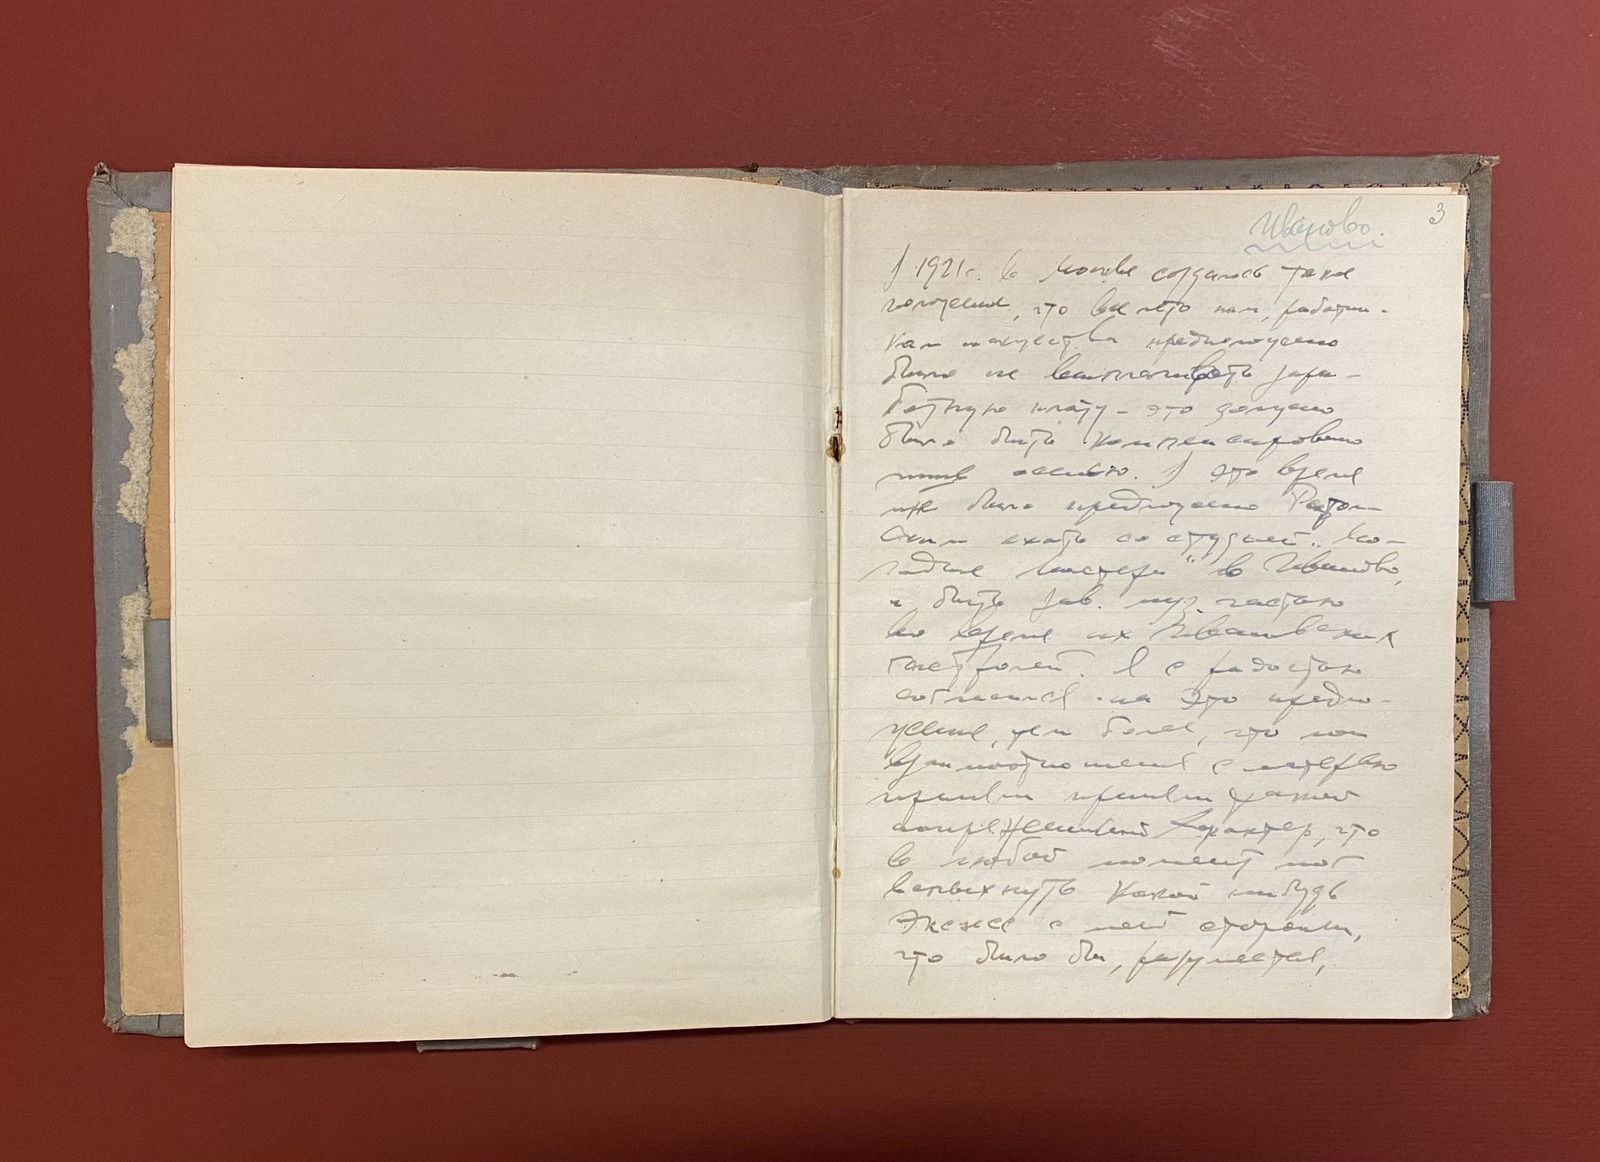 3
Иваново.
В 1921 г. в Москве создалось такое
положение, что все лето нам, работни-
кам искусства предположено
было не выплачивать зара-
ботную плату - это должно
было быть компенсировано
осенью. В это время
мне было предложено
ехать со студией „Мо-
лодые мастера" в Иваново,
и быть зав. муз. частью
во время их Ивановских
гастролей. Я с радостью
согласился на это предло-
жение, тем более, что мои
взаимоотношения с
приняли приняли такой
напряженный характер, что
в любой момент мог
вспыхнуть какой нибудь
эксцесс с моей стороны,
что было бы, разумеется,